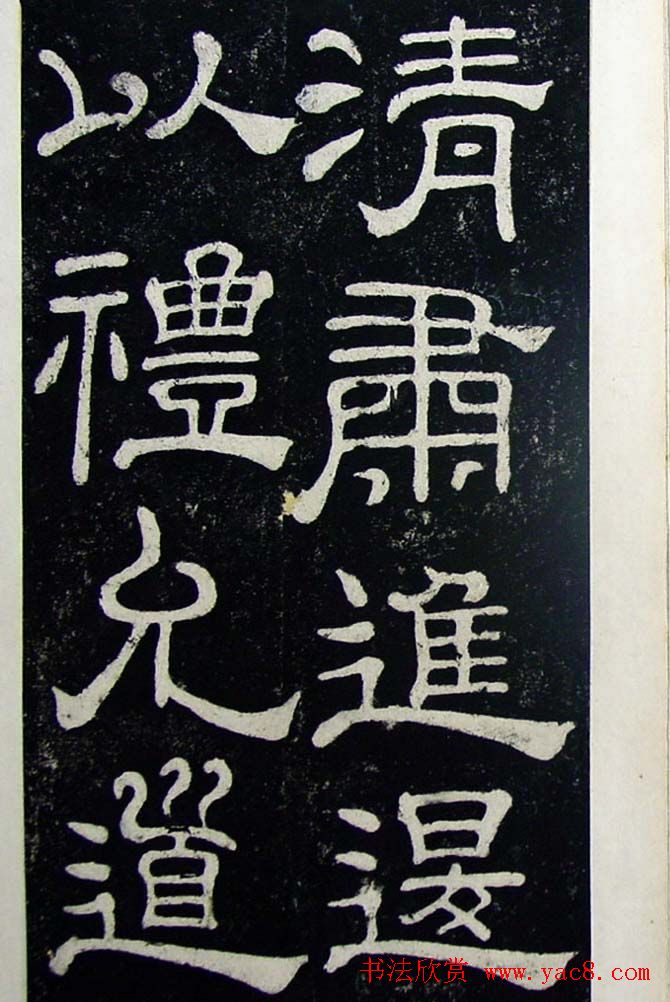 清肅進退
以禮允道
书法欣赏 www.yac8.com